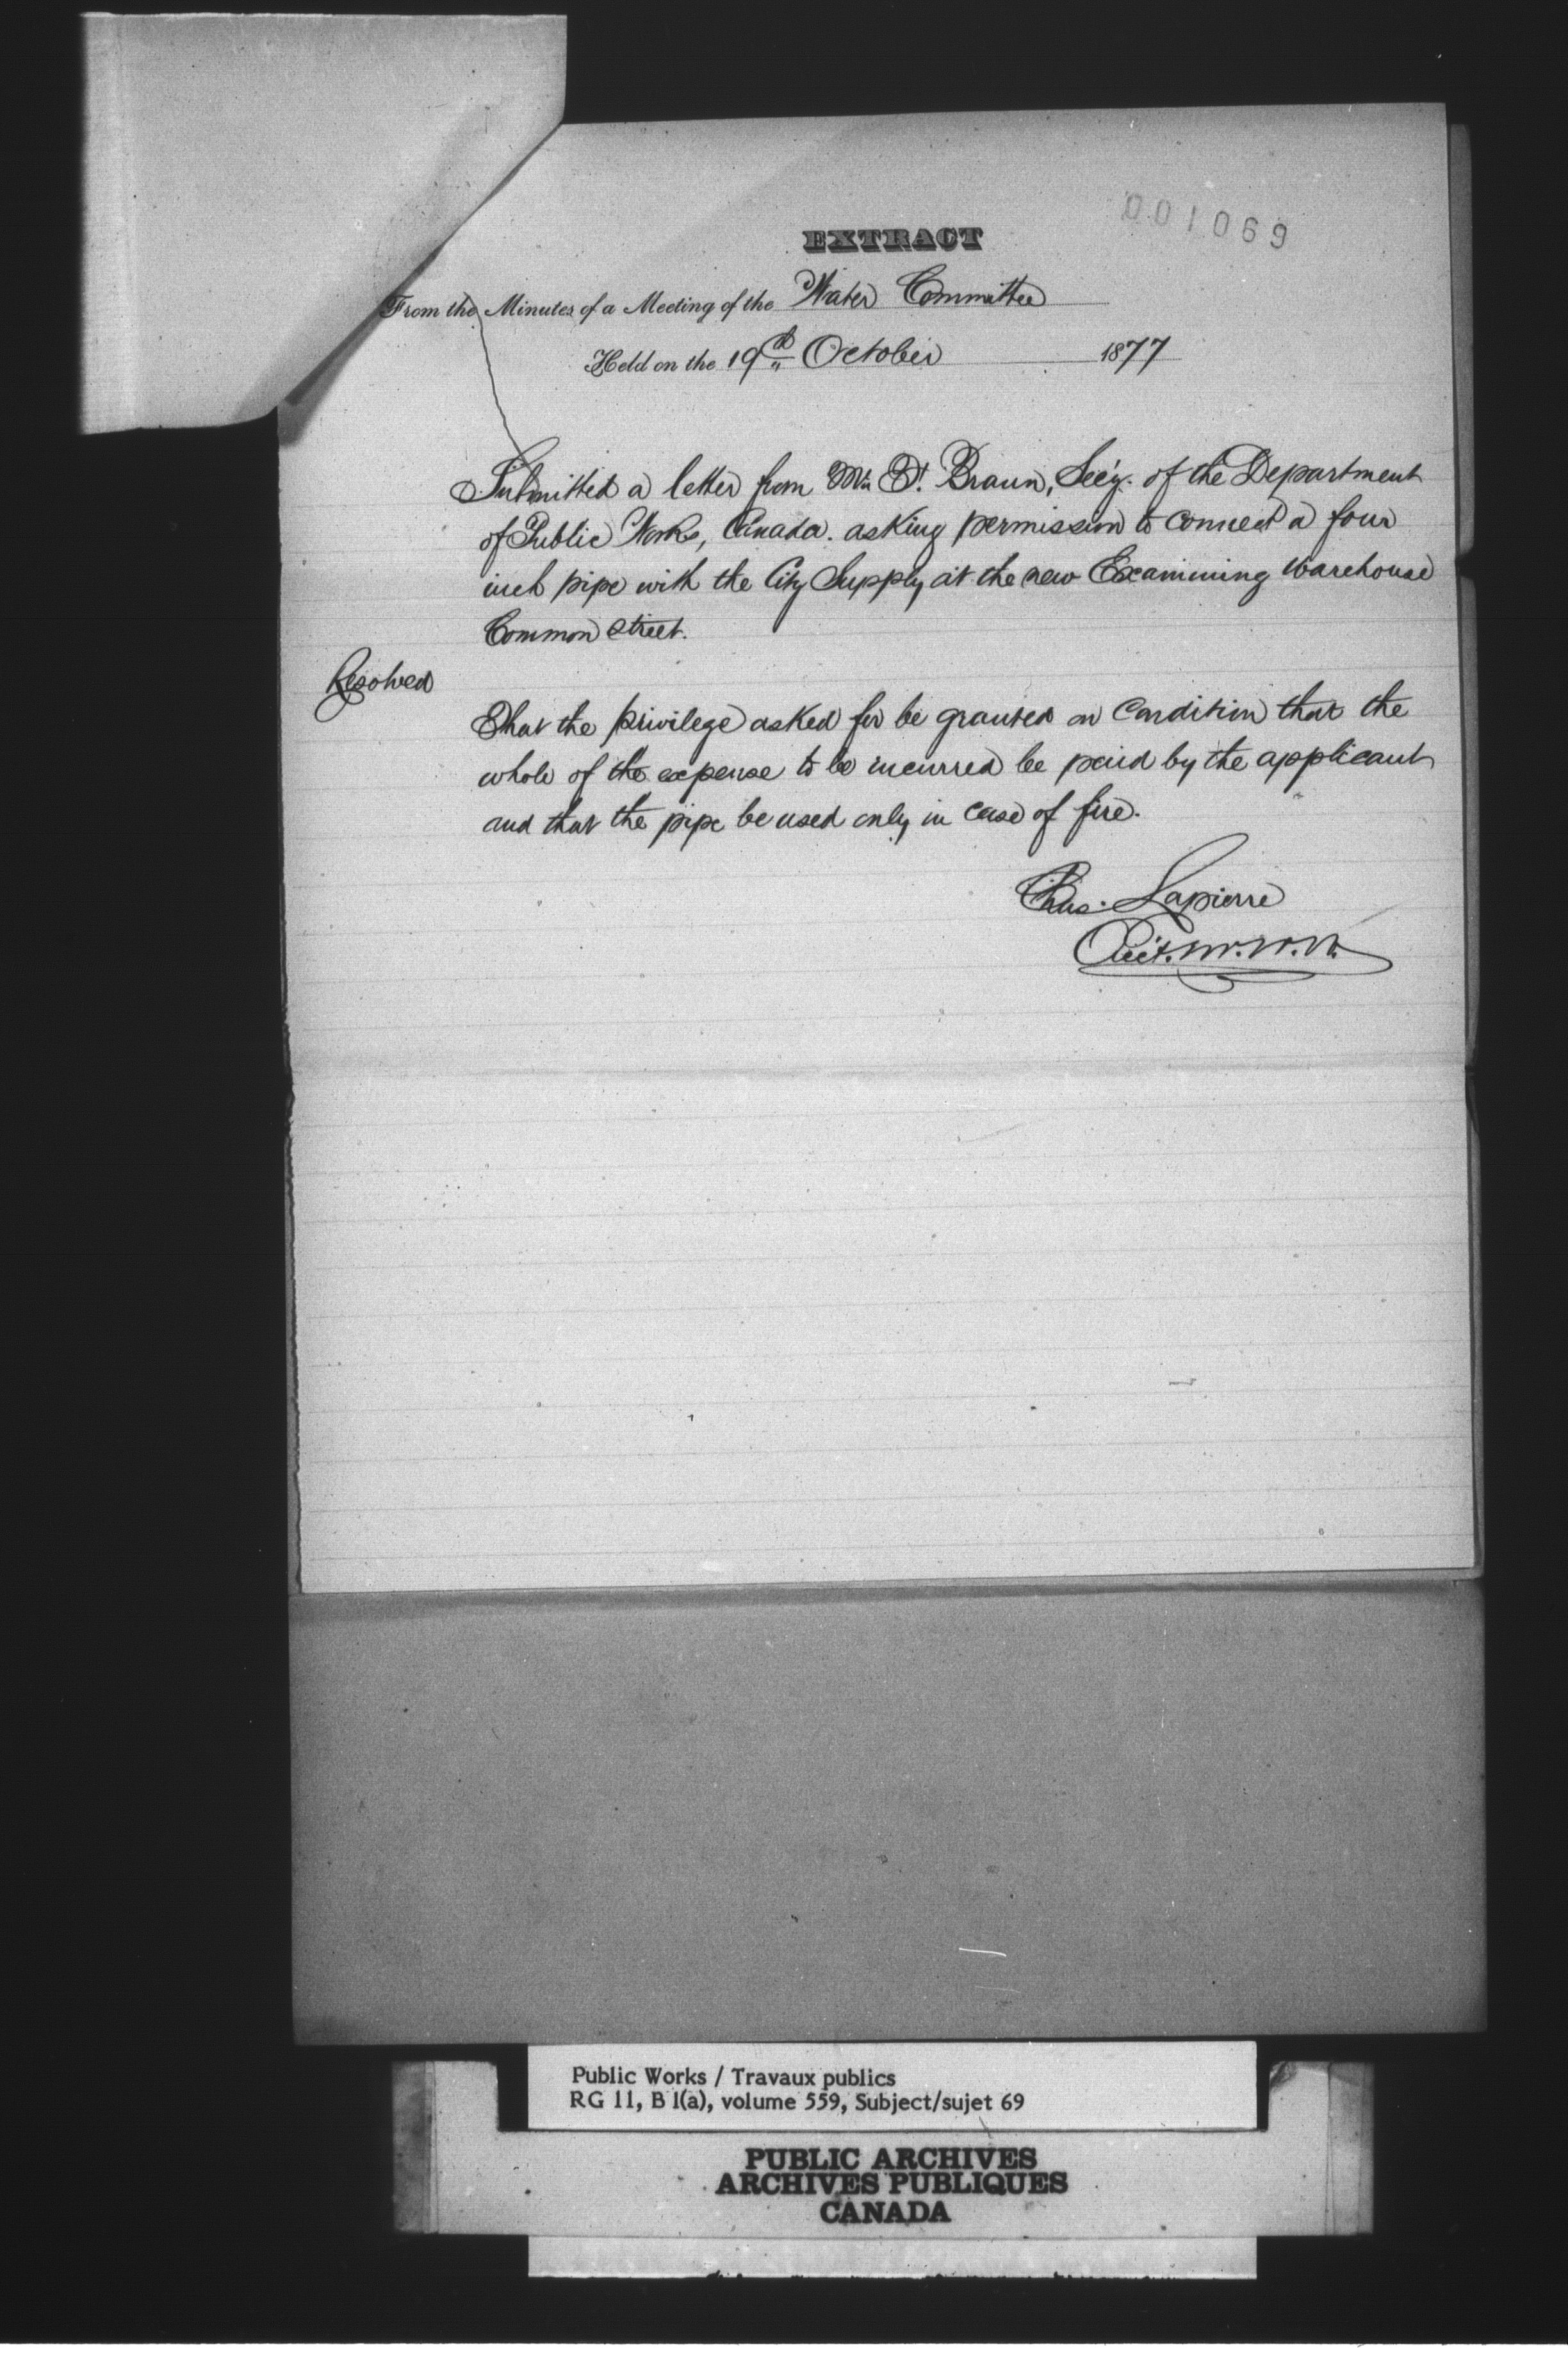 001069
EXTRACT
From the Minutes of a Meeting of the Water Committee
Held on the 19th October 1877
Submitted a letter from Mr. F. Braun, Sec'y. of the Department
of Public Works, Canada. asking permission to connect a four
inch pipe with the City Supply at the new Examining Warehouse
Common Street.
Resolved
That the privilege asked for be granted on condition that the
whole of the expense to be incurred be paid by the applicant
and that the pipe be used only in case of fire.
Chas. Lapierre
W.W.
Public Works / Travaux publics
RG 11, B 1(a), volume 559, Subject/sujet 69
PUBLIC ARCHIVES
ARCHIVES PUBLIQUES
CANADA